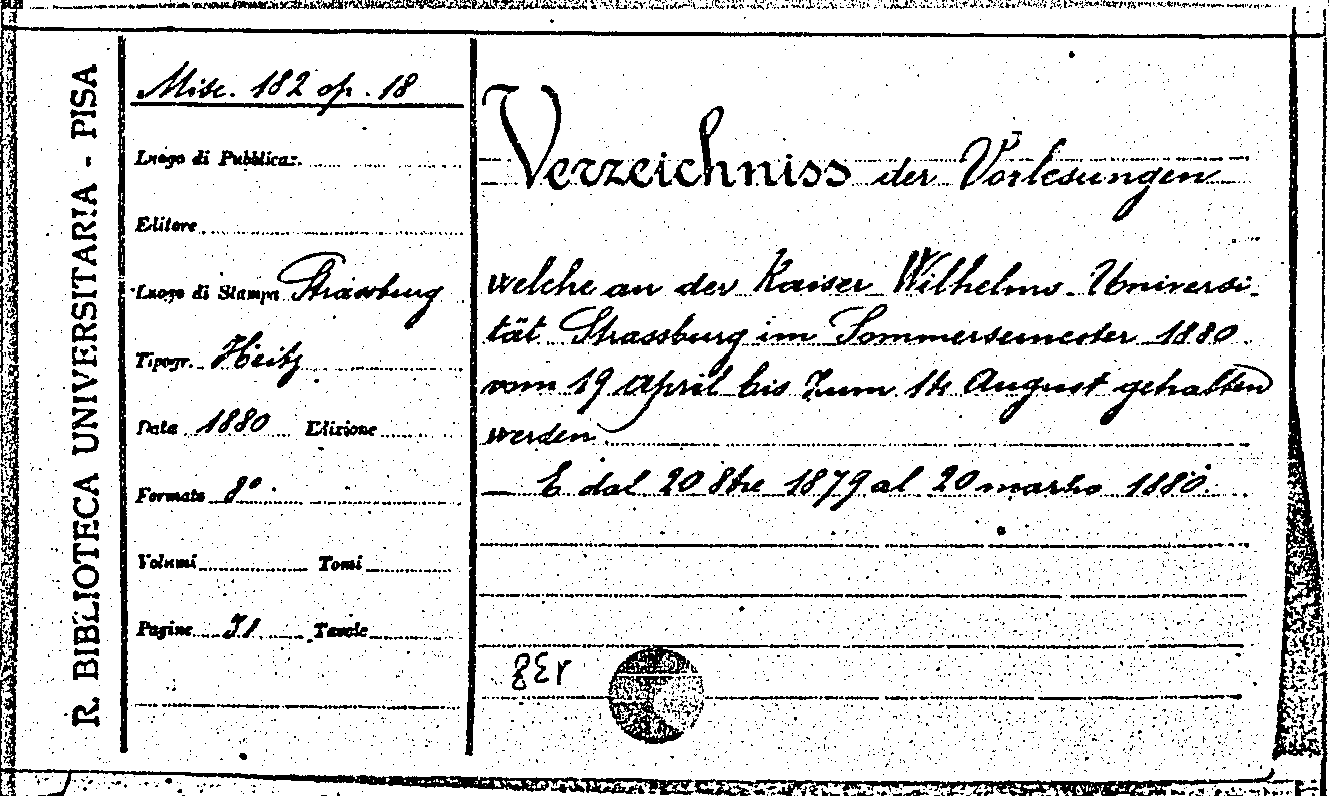 R. BIBLIOTECA UNIVERSITARIA - PISA
Misc. 182 op. 18
Luogo di Pubblicaz.
Editore
Luogo di Stampa Strassburg
Tipogr. Heitz
Data 1880 Edizione
Formato 8°.
Volumi Tomi
Pagine Tavole
Verzeichniss der Vorlesungen
welche an der Kaiser Wilhelms-Universi-
tät Strassburg im Sommersemester 1880
vom 19 April bis zum 14 August gehalten
werden
— E dal 20 8bre 1879 al 20 marzo 1880.